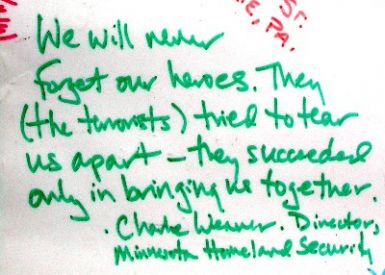 ST.
E, PA.
We will never
forget our heroes. They
(the terrorists) tried to tear
us apart – they succeeded
only in bringing us together.
. Charlie Weaver. Director,
Minnesota Homeland Security